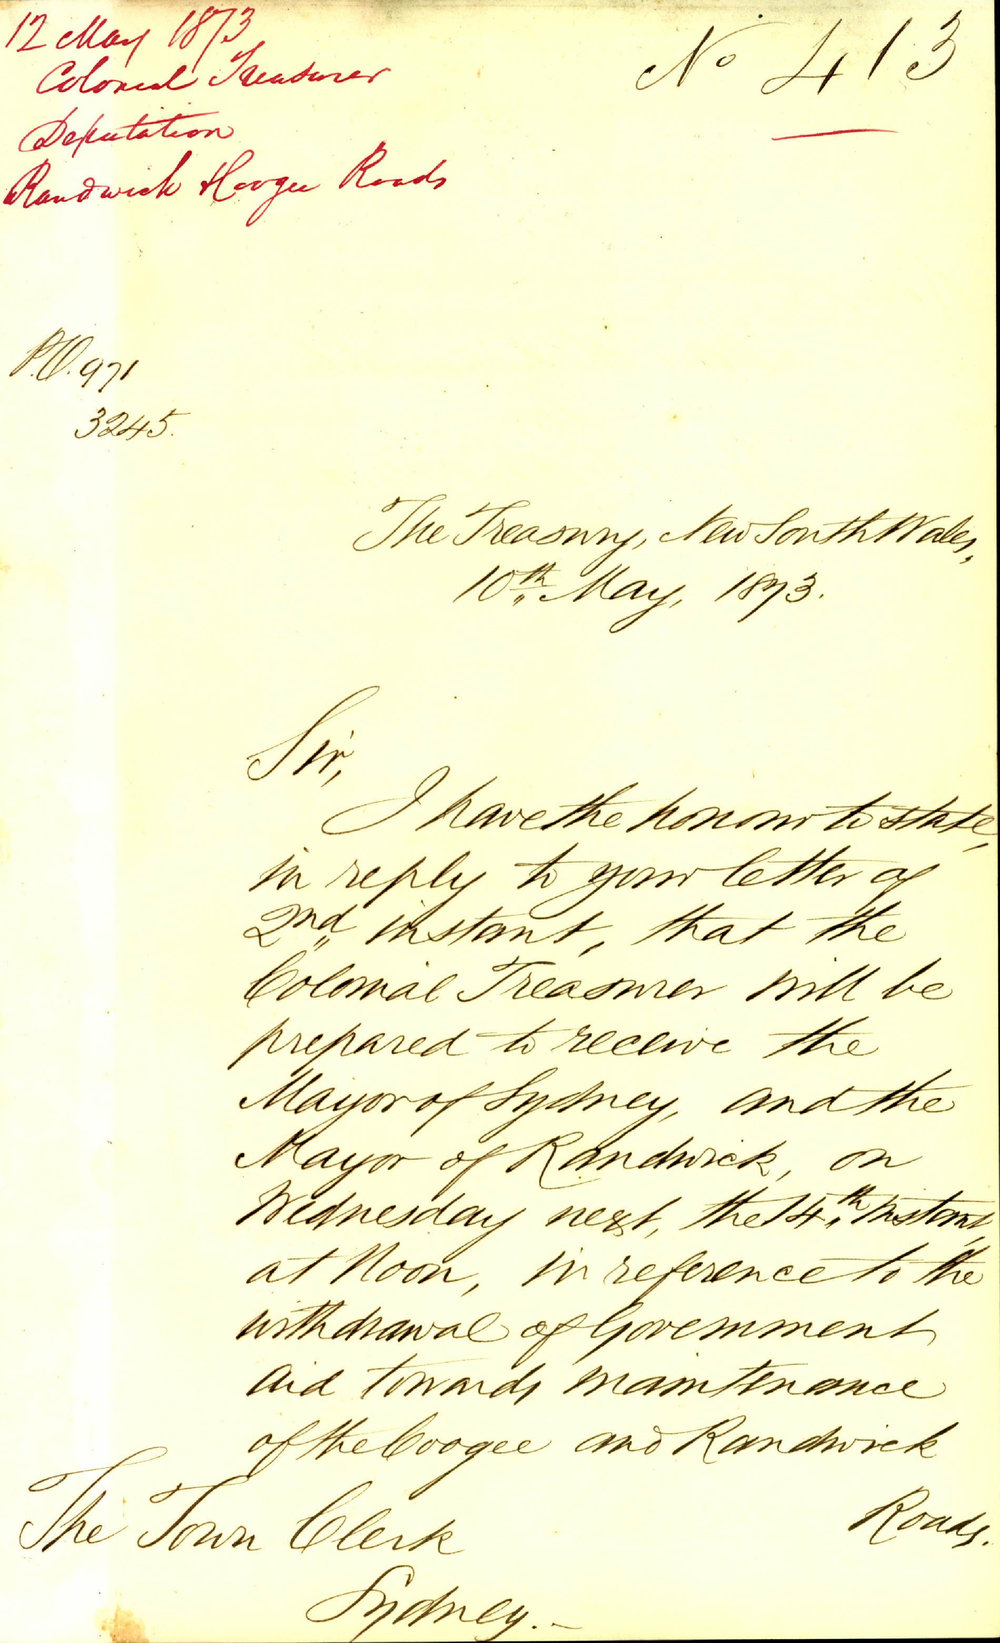 12 May 1873
Colonial Treasurer
Deputation
Randwick & Coogee Roads
No 413
P.O. 971
3245.
The Treasury, New South Wales,
10th May, 1873.
Sir,
I have the honour to state,
in reply to your letter of
2nd instant, that the
Colonial Treasurer will be
prepared to receive the
Mayor of Sydney, and the
Mayor of Randwick, on
Wednesday next, the 14th instant,
at Noon, in reference to the
withdrawal of Government
aid towards maintenance
of the Coogee and Randwick
Roads.
The Town Clerk
Sydney.-